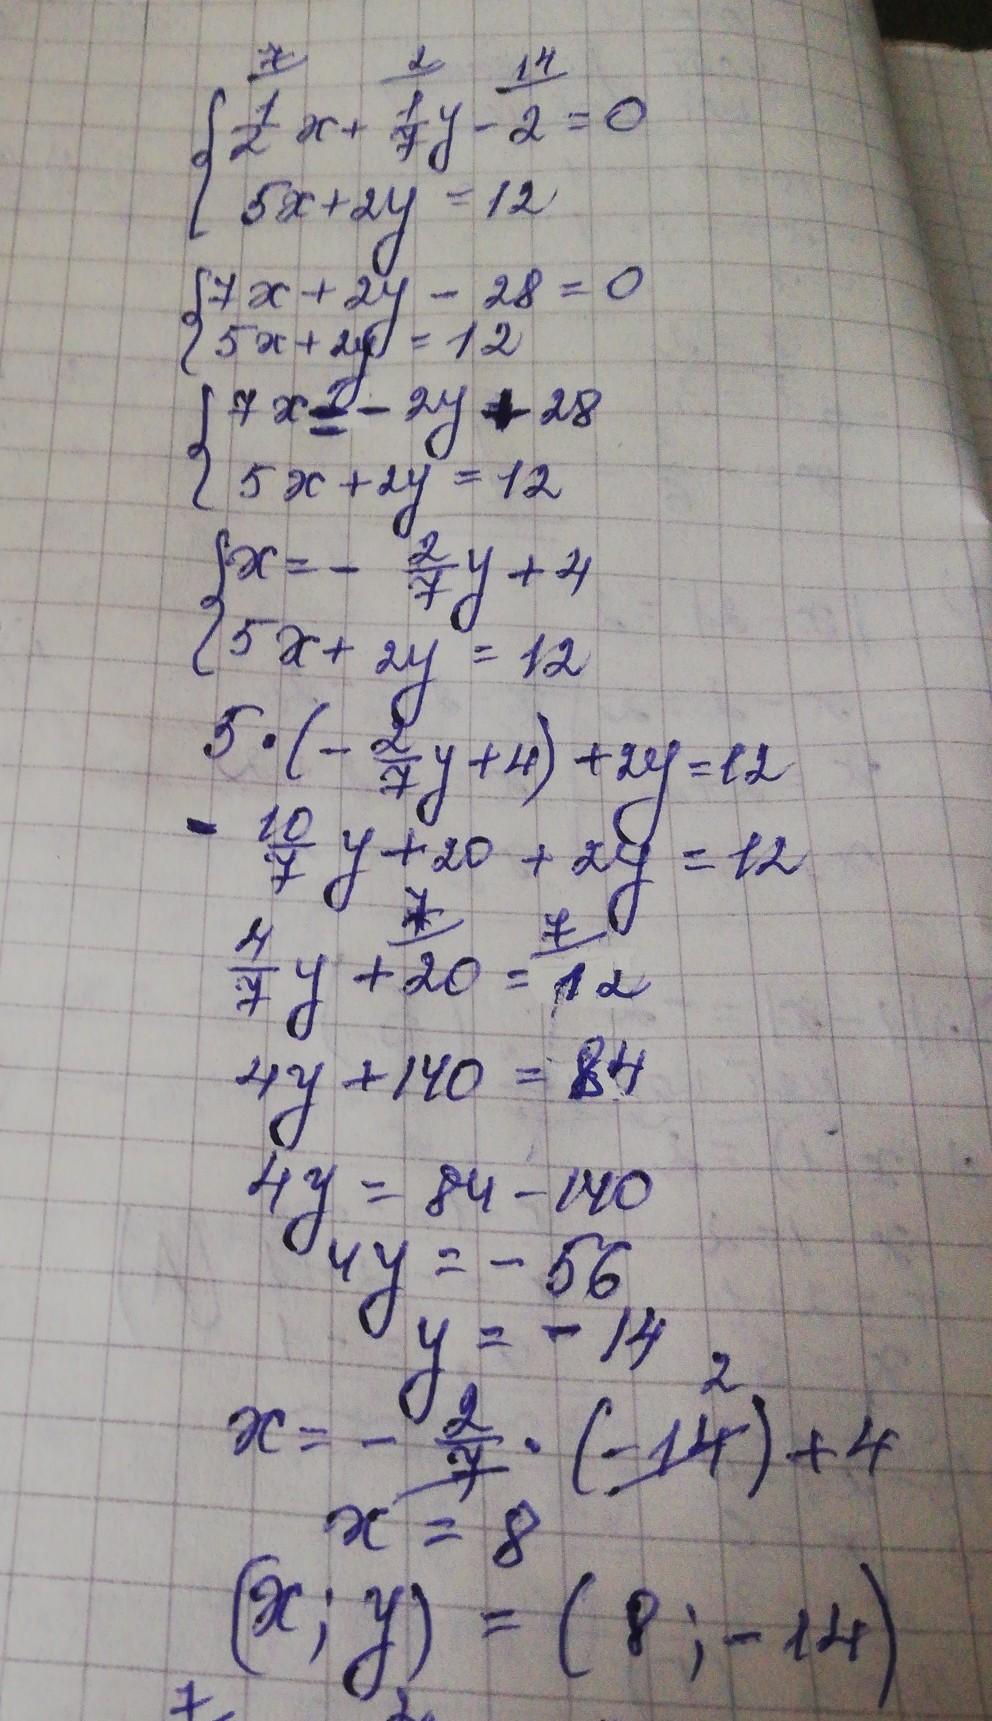 7 2 14
1/2 x + 1/7 y - 2 = 0
5x + 2y = 12
7x + 2y - 28 = 0
5x + 2y = 12
7x = - 2y + 28
5x + 2y = 12
x = - 2/7 y + 4
5x + 2y = 12
5 · (- 2/7 y + 4) + 2y = 12
- 10/7 y + 20 + 2y = 12
7 7
4/7 y + 20 = 12
4y + 140 = 84
4y = 84 - 140
4y = - 56
y = - 14
2
x = - 2/7 · (-14) + 4
x = 8
(x; y) = (8; -14)
7 2